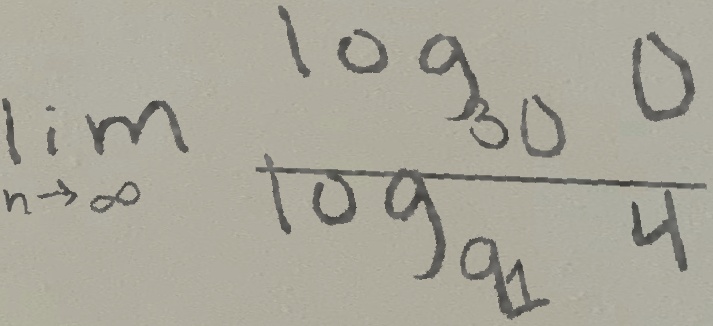 lim n→∞ log₃₀ 0 / log₉₁ 4